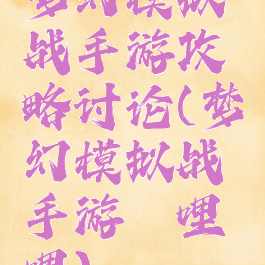 梦幻模拟
战手游攻
略讨论(梦
幻模拟战
手游 哩
哩)